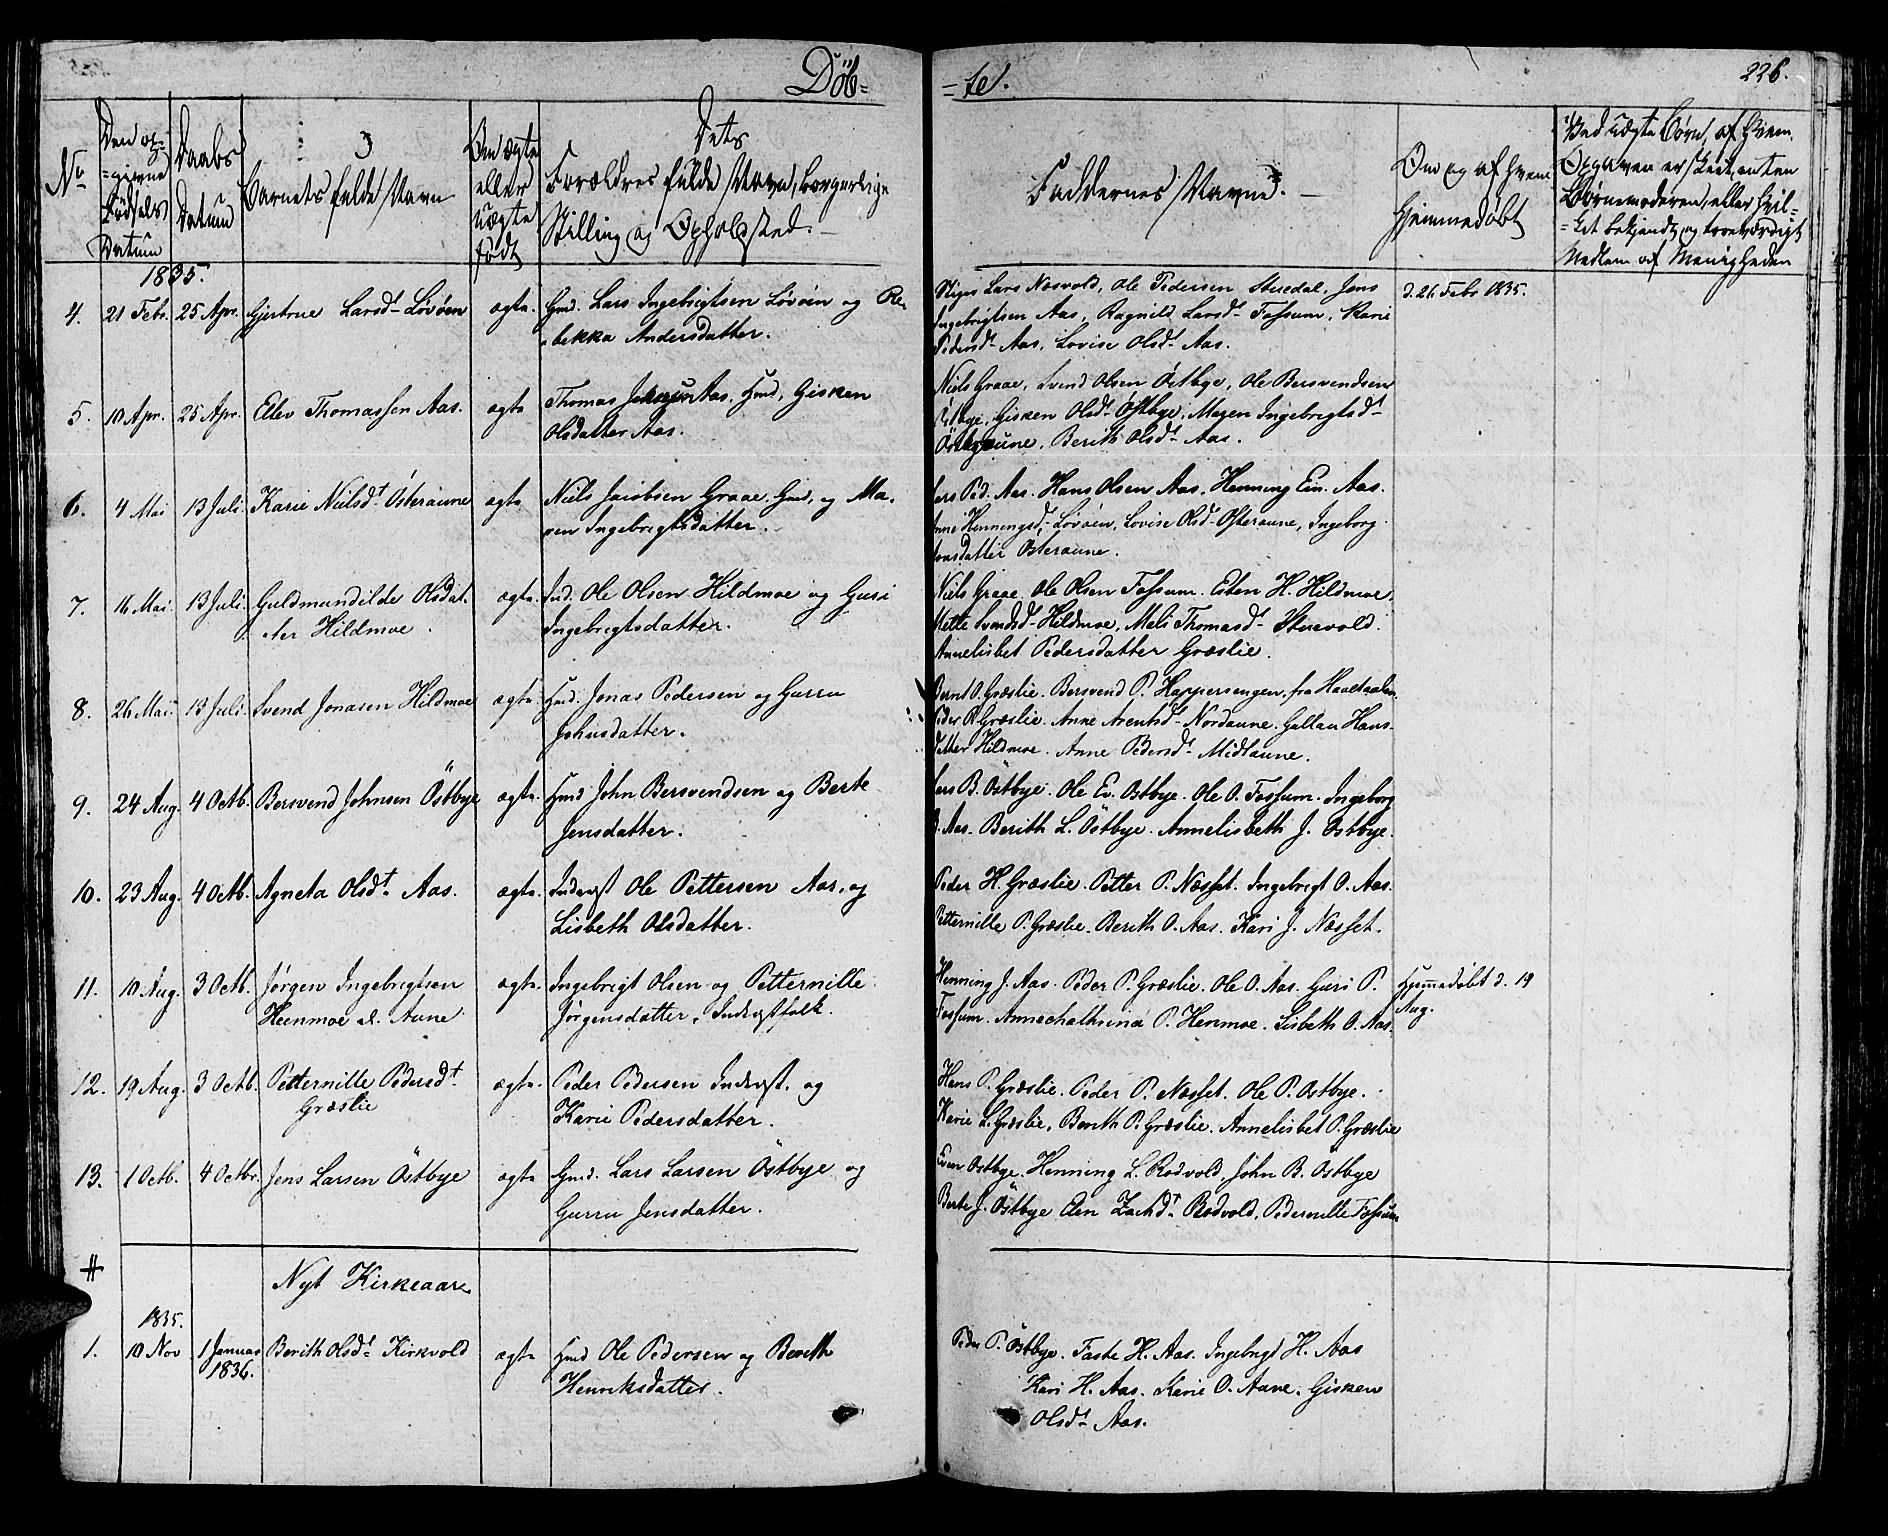 Döb= =te.
226.
No
Den op=
=givne
Födsels
Datum
Daabs
Datum
Barnets fulde Navn
Om ægte
eller
uægte
födt
Dets
Forældres fulde Navn, borgerlige
Stilling og Opholdsted.
Faddernes Navne.
Om og af hvem
hjemmedöbt
Ved uægte Börn, af hvem
Opgaven er skeet, enten
Börnemoderen, eller hvil=
=ket bekjendt og troeværdigt
Medlem af Menigheden
1835.
4. 21 Febr. 25 Apr. Gjertrue Larsdt Lövöen ægte. Gmd. Lars Ingebrigtsen Lövöen og Re
bekka Andersdatter.
Lars Næsvold, Ole Pedersen Stuedal, Jens
Ingebrigtsen Aas, Ragnild Larsdt Fossum, Karie
Pedersdt Aas, Lovise Olsdt Aas.
d. 21. Febr 1835.
5. 10 Apr. 25 Apr. Elev Thomassen Aas. ægte Thomas Aas. Hmd, Gisken
Olsdatter Aas.
Niels Graae, Svend Olsen Östbye, Ole Bersvendsen
Östbye, Gisken Olsdt Östbye, Maren Ingebrigtsdt
Österaune, Berith Olsdt Aas.
6. 4 Mai 13 Juli. Karie Nielsdt Österaune ægte Niels Jacobsen Graae. Gmd, og Ma.
ren Ingebrigtsdatter.
Lars Ped. Aas. Hans Olsen Aas. Henning Ein. Aas.
Anne Henningsd. Lövöen, Lovise Olsd Österaune, Ingeborg
Jonsdatter Österaune.
7. 16 Mai. 13 Juli. Guldmundilde Olsdat.
ter Hildmoe. ægte. Ind. Ole Olsen Hildmoe og Guri
Ingebrigtsdatter.
Niels Graae. Ole Olsen Fossum. Esten H. Hildmoe.
Mette Svendsd Hildmoe, Meli Thomasd Stuevold.
Annelisbet Pedersdatter Græslie.
8. 26 Mai. 13 Juli. Svend Jonasen Hildmoe ægte. Hmd. Jonas Pedersen og Gurru
Johnsdatter.
Bernt O. Græslie. Bersvend P. Happersengen, fra Haaltaalen,
Peder P. Græslie. Anne Arentsd Nordaune. Hans-
datter Hildmoe. Anne Pedersdt Midtaune.
9. 24 Aug. 4 Octb. Bersvend Johnsen Östbye ægte. Hmd John Bersvendsen og Berte
Jensdatter.
Lars B. Östbye. Ole Ev. Östbye. Ole O. Fossum. Ingeborg
Aas. Berith L. Östbye. Annelisbeth J. Östbye.
10. 23 Aug. 4 Octb. Agneta Olsdt. Aas. ægte. Inderst Ole Pettersen Aas, og
Lisbeth Olsdatter.
Peder H. Græslie. Petter P. Næsset. Ingebrigt O. Aas.
Petternille P. Græslie. Berith O. Aas. Kari J. Næsset.
11. 10 Aug. 3 Octb. Jörgen Ingebrigtsen
Heenmoe el. Aune ægte. Ingebrigt Olsen og Petternille
Jörgensdatter, Inderstfolk.
Henning J. Aas. Peder P. Græslie. Ole O. Aas. Guri P.
Fossum. Annechathrina P. Henmoe. Lisbeth O. Aas.
Hjemmedöbt d. 19
Aug.
12. 19 Aug. 3 Octb. Petternille Pedersdt.
Græslie ægte. Peder Pedersen Inderst. og
Karie Pedersdatter.
Hans P. Græslie. Peder P. Næsset. Ole P. Östbye.
Karie L. Græslie, Berith P. Græslie. Annelisbet P. Græslie
13. 1 Octb. 4 Octbr. Jens Larsen Östbye ægte Gmd. Lars Larsen Östbye og
Gurru Jensdatter.
Even Östbye. Henning L. Rodvold. John B. Östbye
Berte J. Östbye Elen Zachdt Rodvold, Pedernille Fossum
Nyt Kirkeaar
1835.
1. 10 Nov 1 Januar
1836. Berith Olsdt Kirkvold ægte Hmd Ole Pedersen og Berith
Henriksdatter.
Peder P. Östbye. Faste H. Aas. Ingebrigt H. Aas
Kari H. Aas. Karie O. Aune. Gisken
Olsdt Aas.